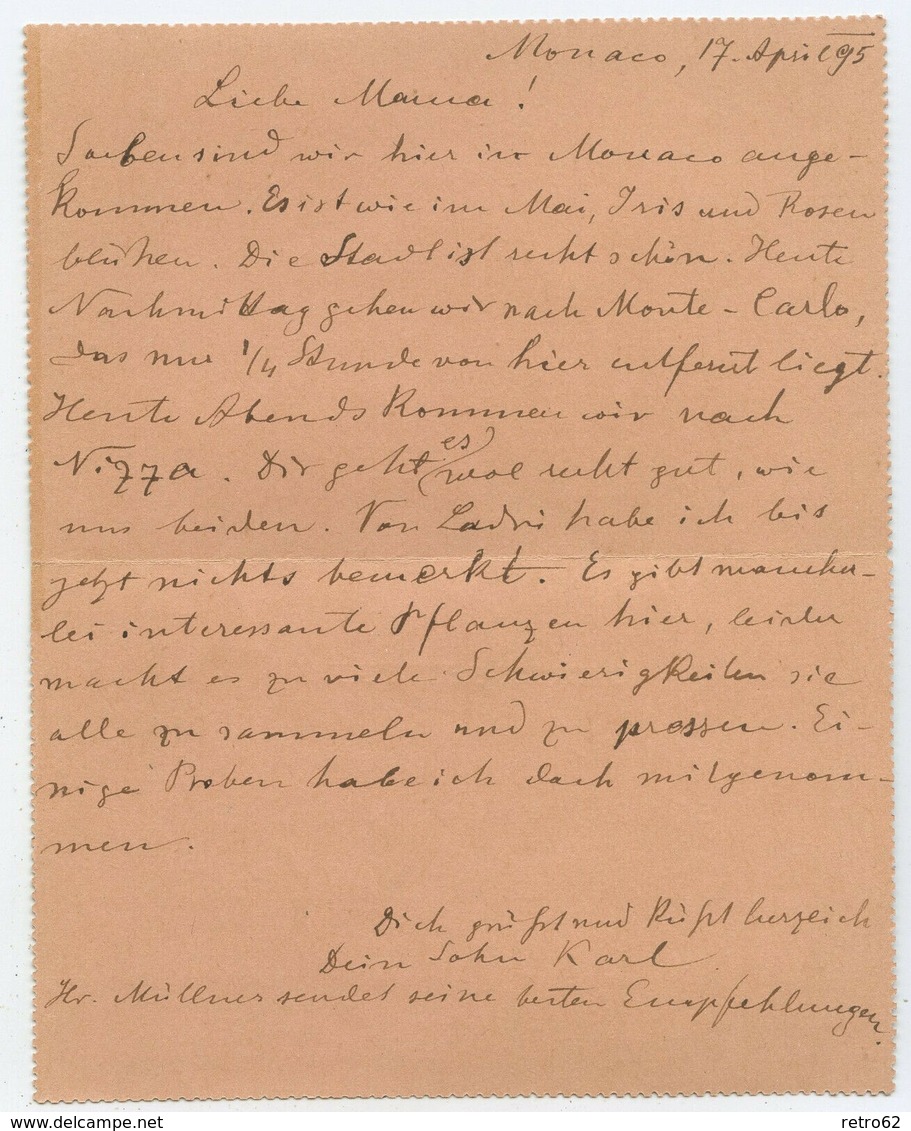 Monaco, 17. April 95
Liebe Mama!
Soeben sind wir hier in Monaco ange-
kommen. Es ist wie im Mai, Iris und Rosen
blühen. Die Stadt ist recht schön. Heute
Nachmittag gehen wir nach Monte-Carlo,
das nur 1/4 Stunde von hier entfernt liegt.
Heute Abends kommen wir nach
Nizza. Dir geht es wol recht gut, wie
uns beiden. Von habe ich bis
jetzt nichts bemerkt. Es gibt mancher-
lei interessante Pflanzen hier, leider
macht es zu viele Schwierigkeiten sie
alle zu sammeln und zu pressen. Ei-
nige Proben habe ich doch mitgenom-
men.
Dich grüßt und küßt herzlich
Dein Sohn Karl
Hr. Müllner sendet seine besten Empfehlungen.
www.delcampe.net
retro62